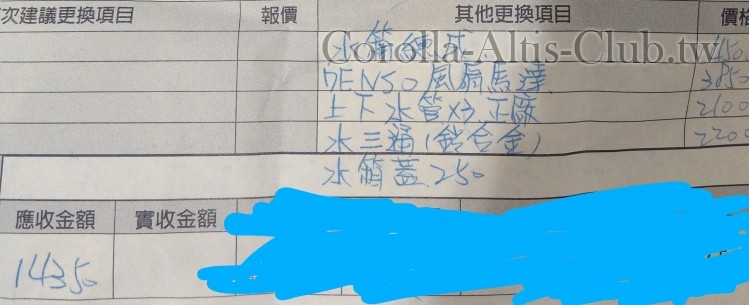 次建議更換項目 報價 其他更換項目 價格
Corolla-Altis-Club.tw
水箱總成
DENSO風扇馬達 3850
上下水管x3 正廠 2100
水三通(鋁合金) 2200
水箱蓋 250
應收金額 實收金額
14350